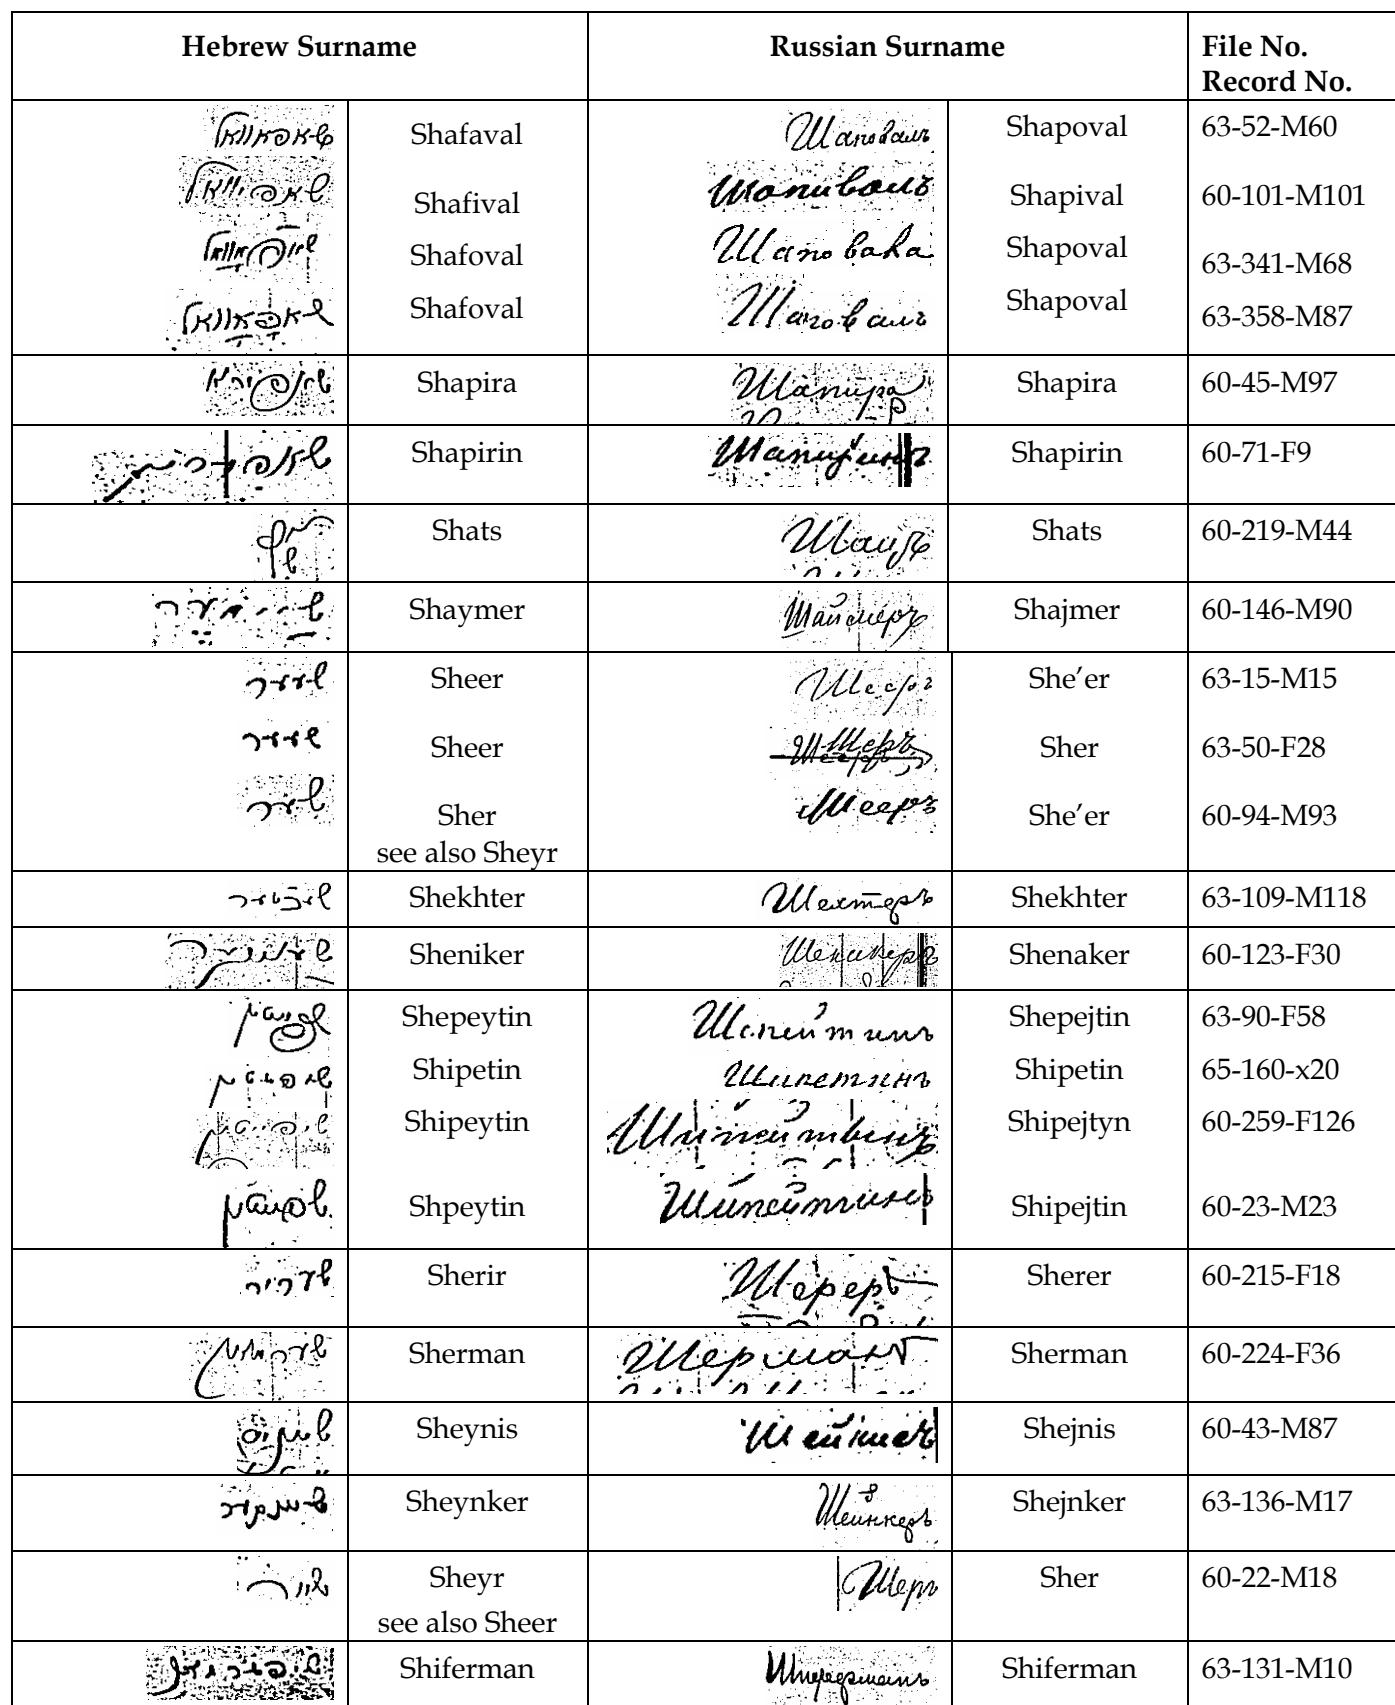 Hebrew Surname Russian Surname File No.
Record No.
שאפאוואל Shafaval Шаповалъ Shapoval 63-52-M60
שאפיוואל Shafival Шапивалъ Shapival 60-101-M101
Shafoval Шаповала Shapoval 63-341-M68
שאפאוואל Shafoval Шаповалъ Shapoval 63-358-M87
שאפירא Shapira Шапира Shapira 60-45-M97
שאפירין Shapirin Шапиринъ Shapirin 60-71-F9
ש״ץ Shats Шацъ Shats 60-219-M44
שיימער Shaymer Шаймеръ Shajmer 60-146-M90
שעער Sheer Шееръ She’er 63-15-M15
שעער Sheer Шеръ Sher 63-50-F28
שער Sher Шееръ She’er 60-94-M93
see also Sheyr
שעכטער Shekhter Шехтеръ Shekhter 63-109-M118
Sheniker Шенакеръ Shenaker 60-123-F30
Shepeytin Шепейтинъ Shepejtin 63-90-F58
שיפעטין Shipetin Шипетинъ Shipetin 65-160-x20
שיפייטין Shipeytin Шипейтынъ Shipejtyn 60-259-F126
שפייטין Shpeytin Шипейтинъ Shipejtin 60-23-M23
שעריר Sherir Шереръ Sherer 60-215-F18
שערמאן Sherman Шерманъ Sherman 60-224-F36
שייניס Sheynis Шейнисъ Shejnis 60-43-M87
שיינקער Sheynker Шейнкеръ Shejnker 63-136-M17
שייר Sheyr Шеръ Sher 60-22-M18
see also Sheer
שיפערמאן Shiferman Шиферманъ Shiferman 63-131-M10